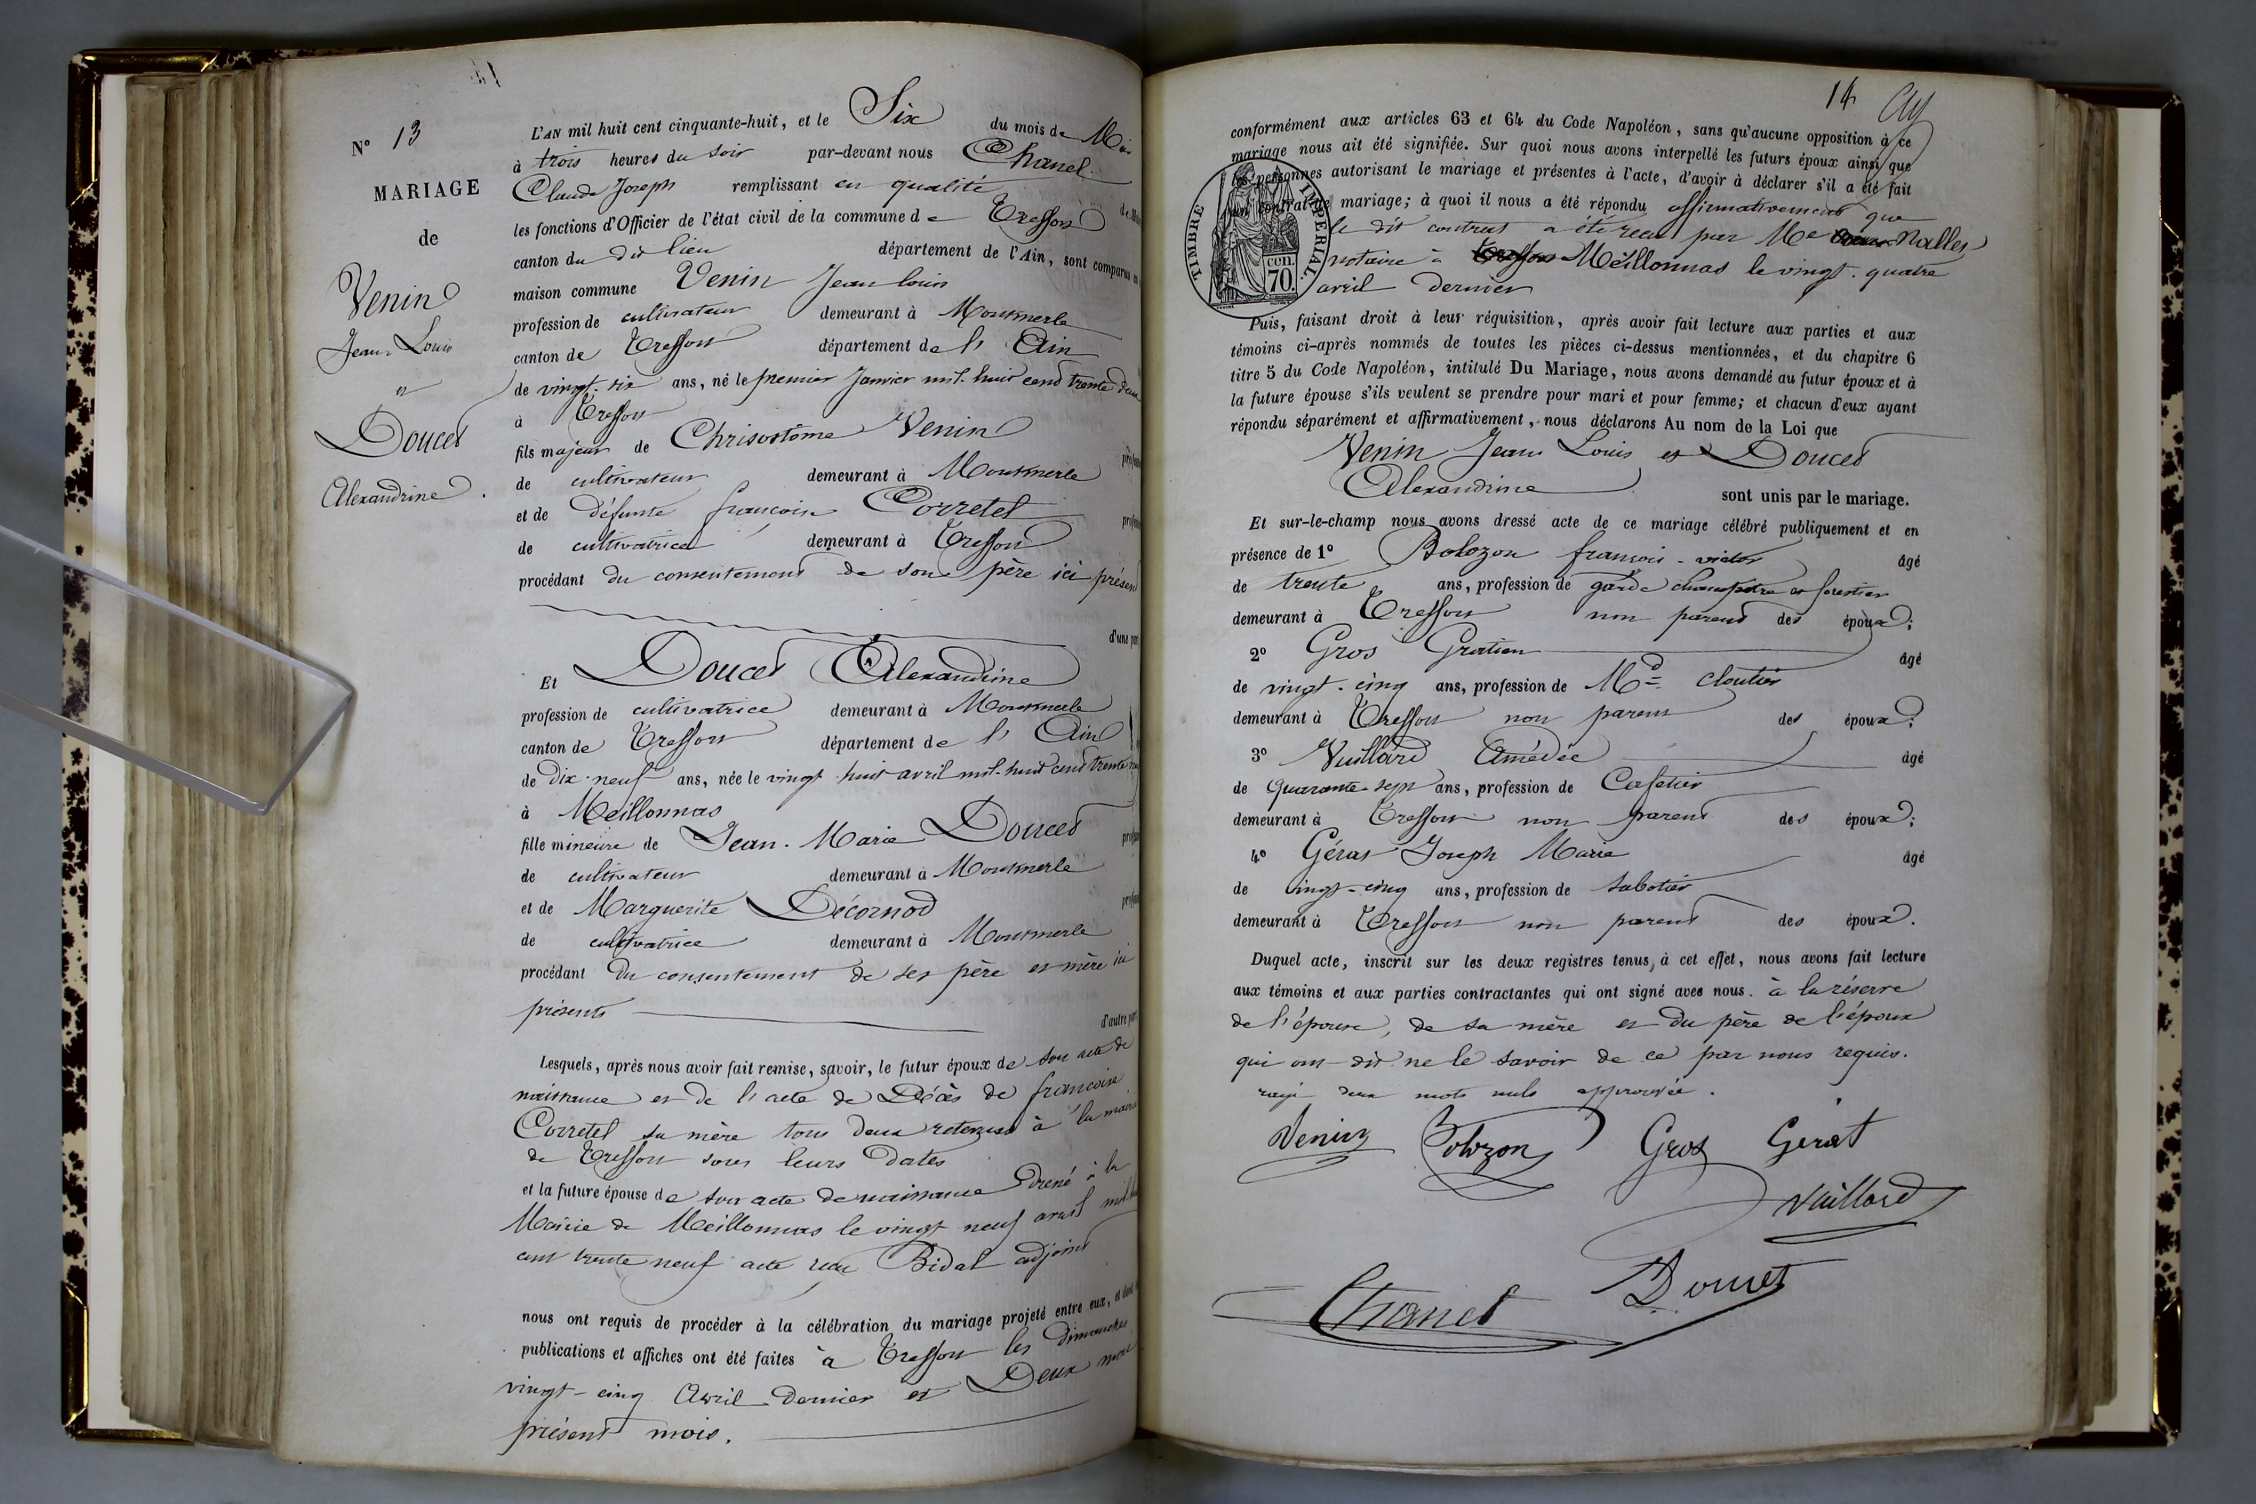 N° 13
MARIAGE
de
Venin
Jean Louis
et
Doucet
Alexandrine.
L'AN mil huit cent cinquante-huit, et le Six du mois de Mai
à trois heures du soir par-devant nous Chanel
Claude Joseph remplissant en qualité de
les fonctions d'Officier de l'état civil de la commune de Treffort
canton du dit lieu département de l'Ain, sont comparus en
maison commune Venin Jean louis
profession de cultivateur demeurant à Montmerle
canton de Treffort département de l'Ain
de vingt-six ans, né le premier Janvier mil-huit cent trente deux
à Treffort
fils majeur de Chrisostôme Venin
de cultivateur demeurant à Montmerle
et de défunte françoise Corretel
de cultivatrice demeurant à Treffort
procédant du consentement de son père ici présent
d'une part
Et Doucet Alexandrine
profession de cultivatrice demeurant à Montmerle
canton de Treffort département de l'Ain
de dix-neuf ans, née le vingt-huit avril mil-huit cent trente
à Meillonnas
fille mineure de Jean-Marie Doucet
de cultivateur demeurant à Montmerle
et de Marguerite Décornod
de cultivatrice demeurant à Montmerle
procédant du consentement de ses père et mère ici
présents
d'autre part
Lesquels, après nous avoir fait remise, savoir, le futur époux de son acte de
naissance et de l'acte de Décès de francoise
Corretel sa mère tous deux retenus à la mairie
de Treffort sous leurs dates
et la future épouse de son acte de naissance à la
Mairie de Meillonnas le vingt neuf avril mil huit
cent trente neuf acte reçu Bidal adjoint
nous ont requis de procéder à la célébration du mariage projeté entre eux, et dont
publications et affiches ont été faites à Treffort les dimanches
vingt-cinq Avril dernier et Deux mai
présent mois.
14
conformément aux articles 63 et 64 du Code Napoléon, sans qu'aucune opposition à ce
mariage nous ait été signifiée. Sur quoi nous avons interpellé les futurs époux ainsi que
les personnes autorisant le mariage et présentes à l'acte, d'avoir à déclarer s'il a été fait
un contrat de mariage; à quoi il nous a été répondu affirmativement que
le dit contrat a été reçu par Me Nallet
notaire à Treffort Meillonnas le vingt-quatre
avril dernier
TIMBRE IMPÉRIAL.
cen.
70.
Puis, faisant droit à leur réquisition, après avoir fait lecture aux parties et aux
témoins ci-après nommés de toutes les pièces ci-dessus mentionnées, et du chapitre 6
titre 5 du Code Napoléon, intitulé Du Mariage, nous avons demandé au futur époux et à
la future épouse s'ils veulent se prendre pour mari et pour femme; et chacun d'eux ayant
répondu séparément et affirmativement, nous déclarons Au nom de la Loi que
Venin Jean Louis et Doucet
Alexandrine sont unis par le mariage.
Et sur-le-champ nous avons dressé acte de ce mariage célébré publiquement et en
présence de 1° Bolozon françois-victor âgé
de trente ans, profession de garde champêtre et forestier
demeurant à Treffort non parent des époux;
2° Gros Gratien âgé
de vingt-cinq ans, profession de Md cloutier
demeurant à Treffort non parent des époux;
3° Vuillard Amédée âgé
de quarante-sept ans, profession de Cafetier
demeurant à Treffort non parent des époux;
4° Gérat Joseph Marie âgé
de vingt-cinq ans, profession de sabotier
demeurant à Treffort non parent des époux.
Duquel acte, inscrit sur les deux registres tenus à cet effet, nous avons fait lecture
aux témoins et aux parties contractantes qui ont signé avec nous. à la réserve
de l'épouse, de sa mère et du père de l'époux
qui ont dit ne le savoir de ce par nous requis.
rayé deux mots nuls approuvée.
Venin Bolozon Gros Gérat
Vuillard
Chanel Doucet